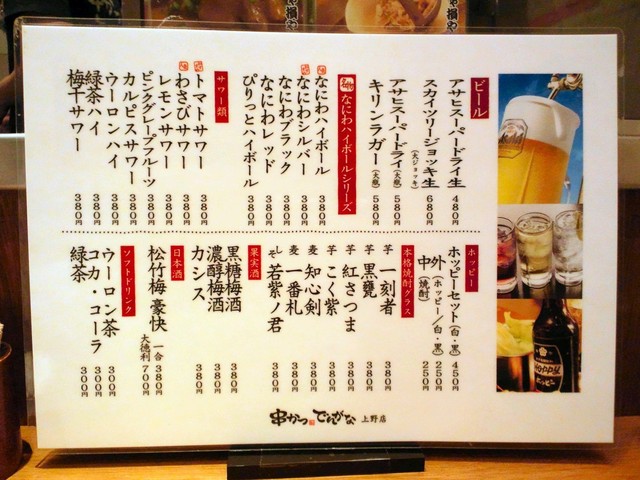 ビール
アサヒスーパードライ生 480円
スカイツリージョッキ生 (大ジョッキ) 680円
アサヒスーパードライ (大瓶) 580円
キリンラガー (大瓶) 580円
なにわハイボールシリーズ
なにわハイボール 380円
なにわシルバー 380円
なにわブラック 380円
なにわレッド 380円
ぴりっとハイボール 380円
サワー類
トマトサワー 380円
わさびサワー 380円
レモンサワー 380円
ピンクグレープフルーツ 380円
カルピスサワー 380円
ウーロンハイ 380円
緑茶ハイ 380円
梅干サワー 380円
ホッピー
ホッピーセット(白・黒) 450円
外(ホッピー/白・黒) 250円
中(焼酎) 250円
本格焼酎グラス
芋 一刻者 380円
芋 黒甕 380円
芋 紅さつま 380円
芋 こく紫 380円
麦 知心剣 380円
麦 一番札 380円
しそ 若紫ノ君 380円
果実酒
黒糖梅酒 380円
濃醇梅酒 380円
カシス 380円
日本酒
松竹梅 豪快 一合 380円
大徳利 700円
ソフトドリンク
ウーロン茶 300円
コカ・コーラ 300円
緑茶 300円
串かつ でんがな 上野店
HOPPY
ホッピー